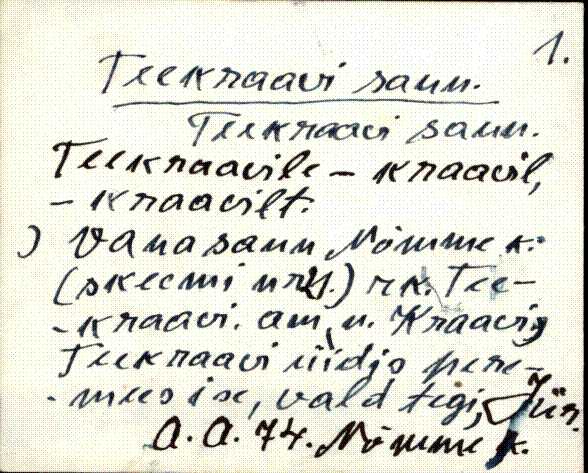 1.
Teekraavi saun.
Teekraavi saun.
Teekraavile - kraavil,
- kraavilt.
) Vana saun Nõmme k.
(skeemi nr 4.) rk. Tee-
-kraavi. am. n. Kraavi,
Teekraavi üidjs pere-
-mees ise, vald tegi, Jür.
A. A. 74. Nõmme k.